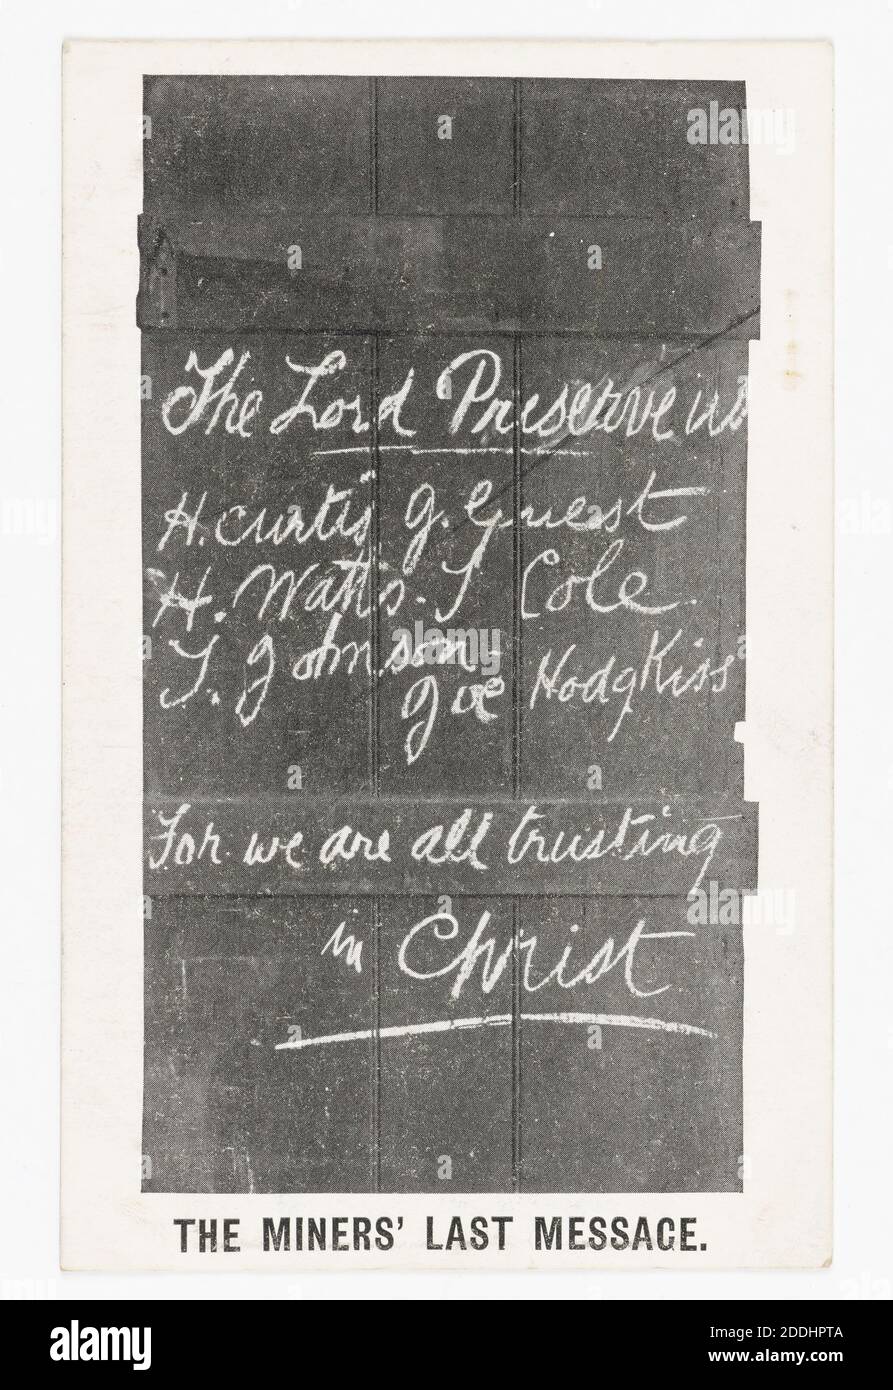 The Lord Preserve us
H. Curtis J. Guest
H. Watts. T Cole.
T. Johnson-
Joe Hodgkiss
For we are all trusting
in Christ
THE MINERS' LAST MESSAGE.
alamy
alamy
a a
a a
a a
a a
a a
alamy
Image ID: 2DDHPTA
www.alamy.com